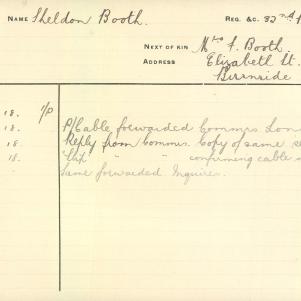 NAME Sheldon Booth. REG. &C. 32nd
NEXT OF KIN Mrs F. Booth.
ADDRESS Elizabeth St.
Burnside
18. 1/P P/Cable forwarded Commrs Lon
18. Reply from Commrs. Copy of same
18. " " confirming cable
Same forwarded Inquirer.